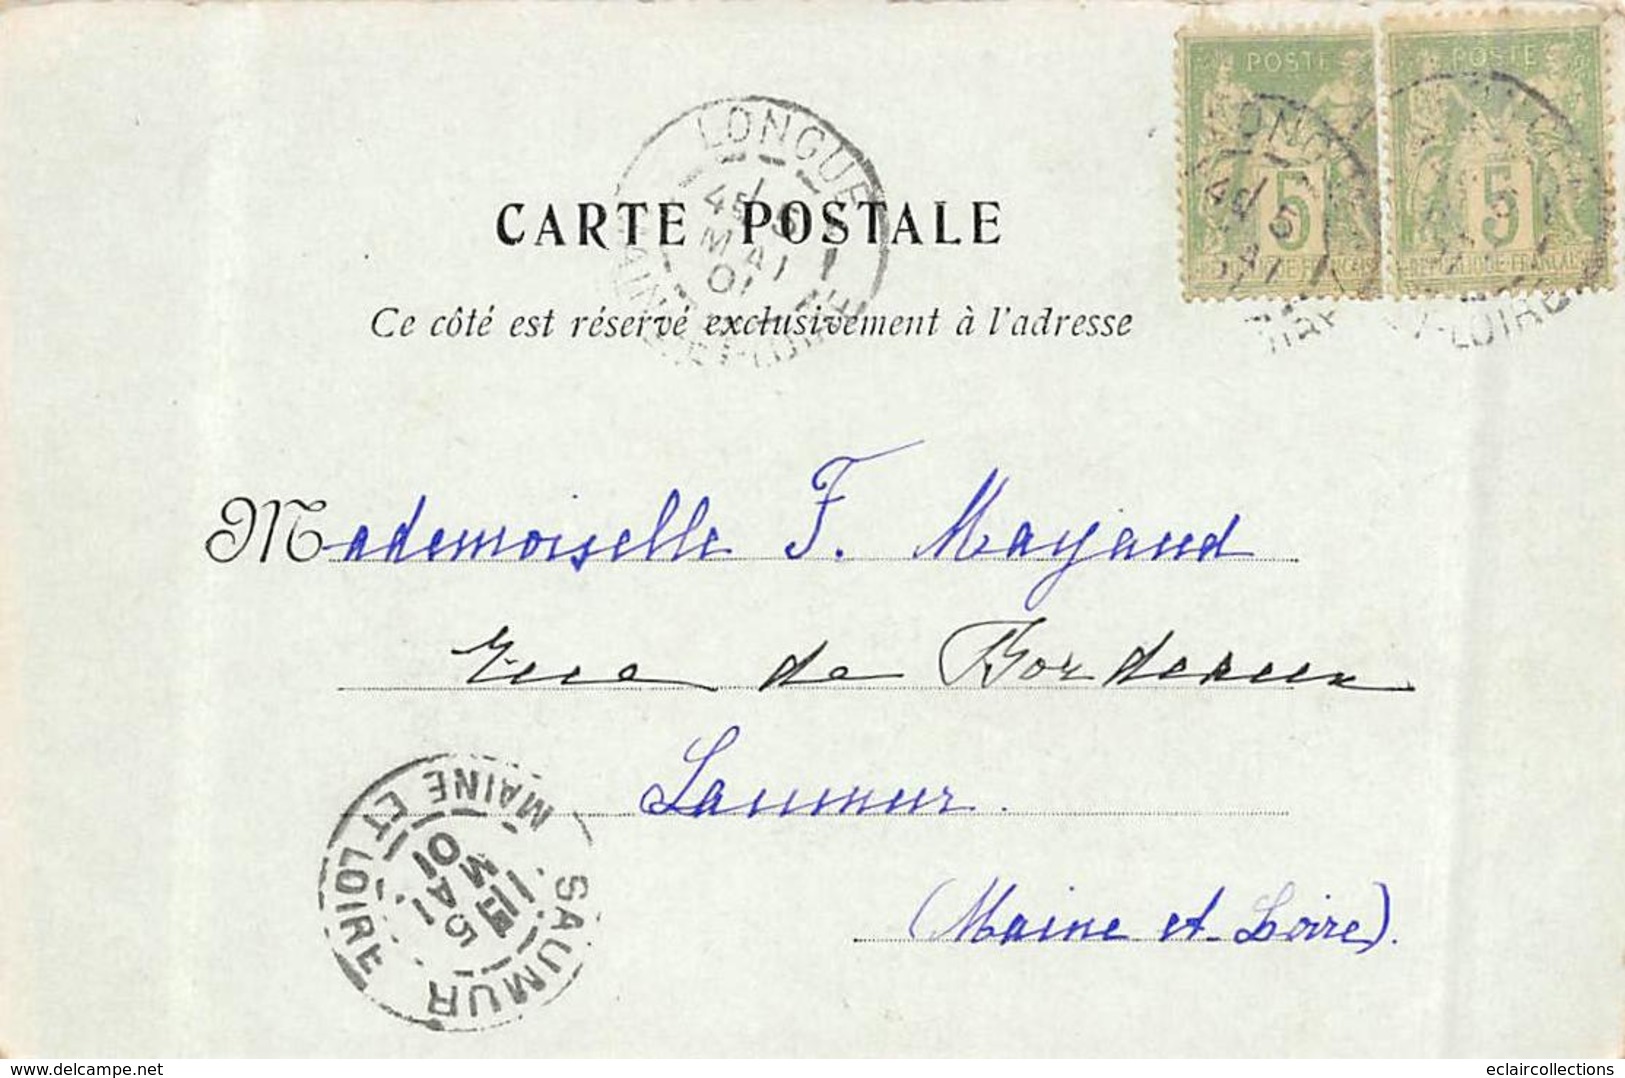 POSTE POSTE
LONGUE
1
4E 5
MAI
01
MAINE-ET-LOIRE
5 5
CARTE POSTALE
Ce côté est réservé exclusivement à l'adresse
Mademoiselle F. Mayaud
Rue de Bordeaux
Saumur.
(Maine et Loire).
SAUMUR
MAINE ET LOIRE
5
MAI
01
delcampe.net
eclaircollections